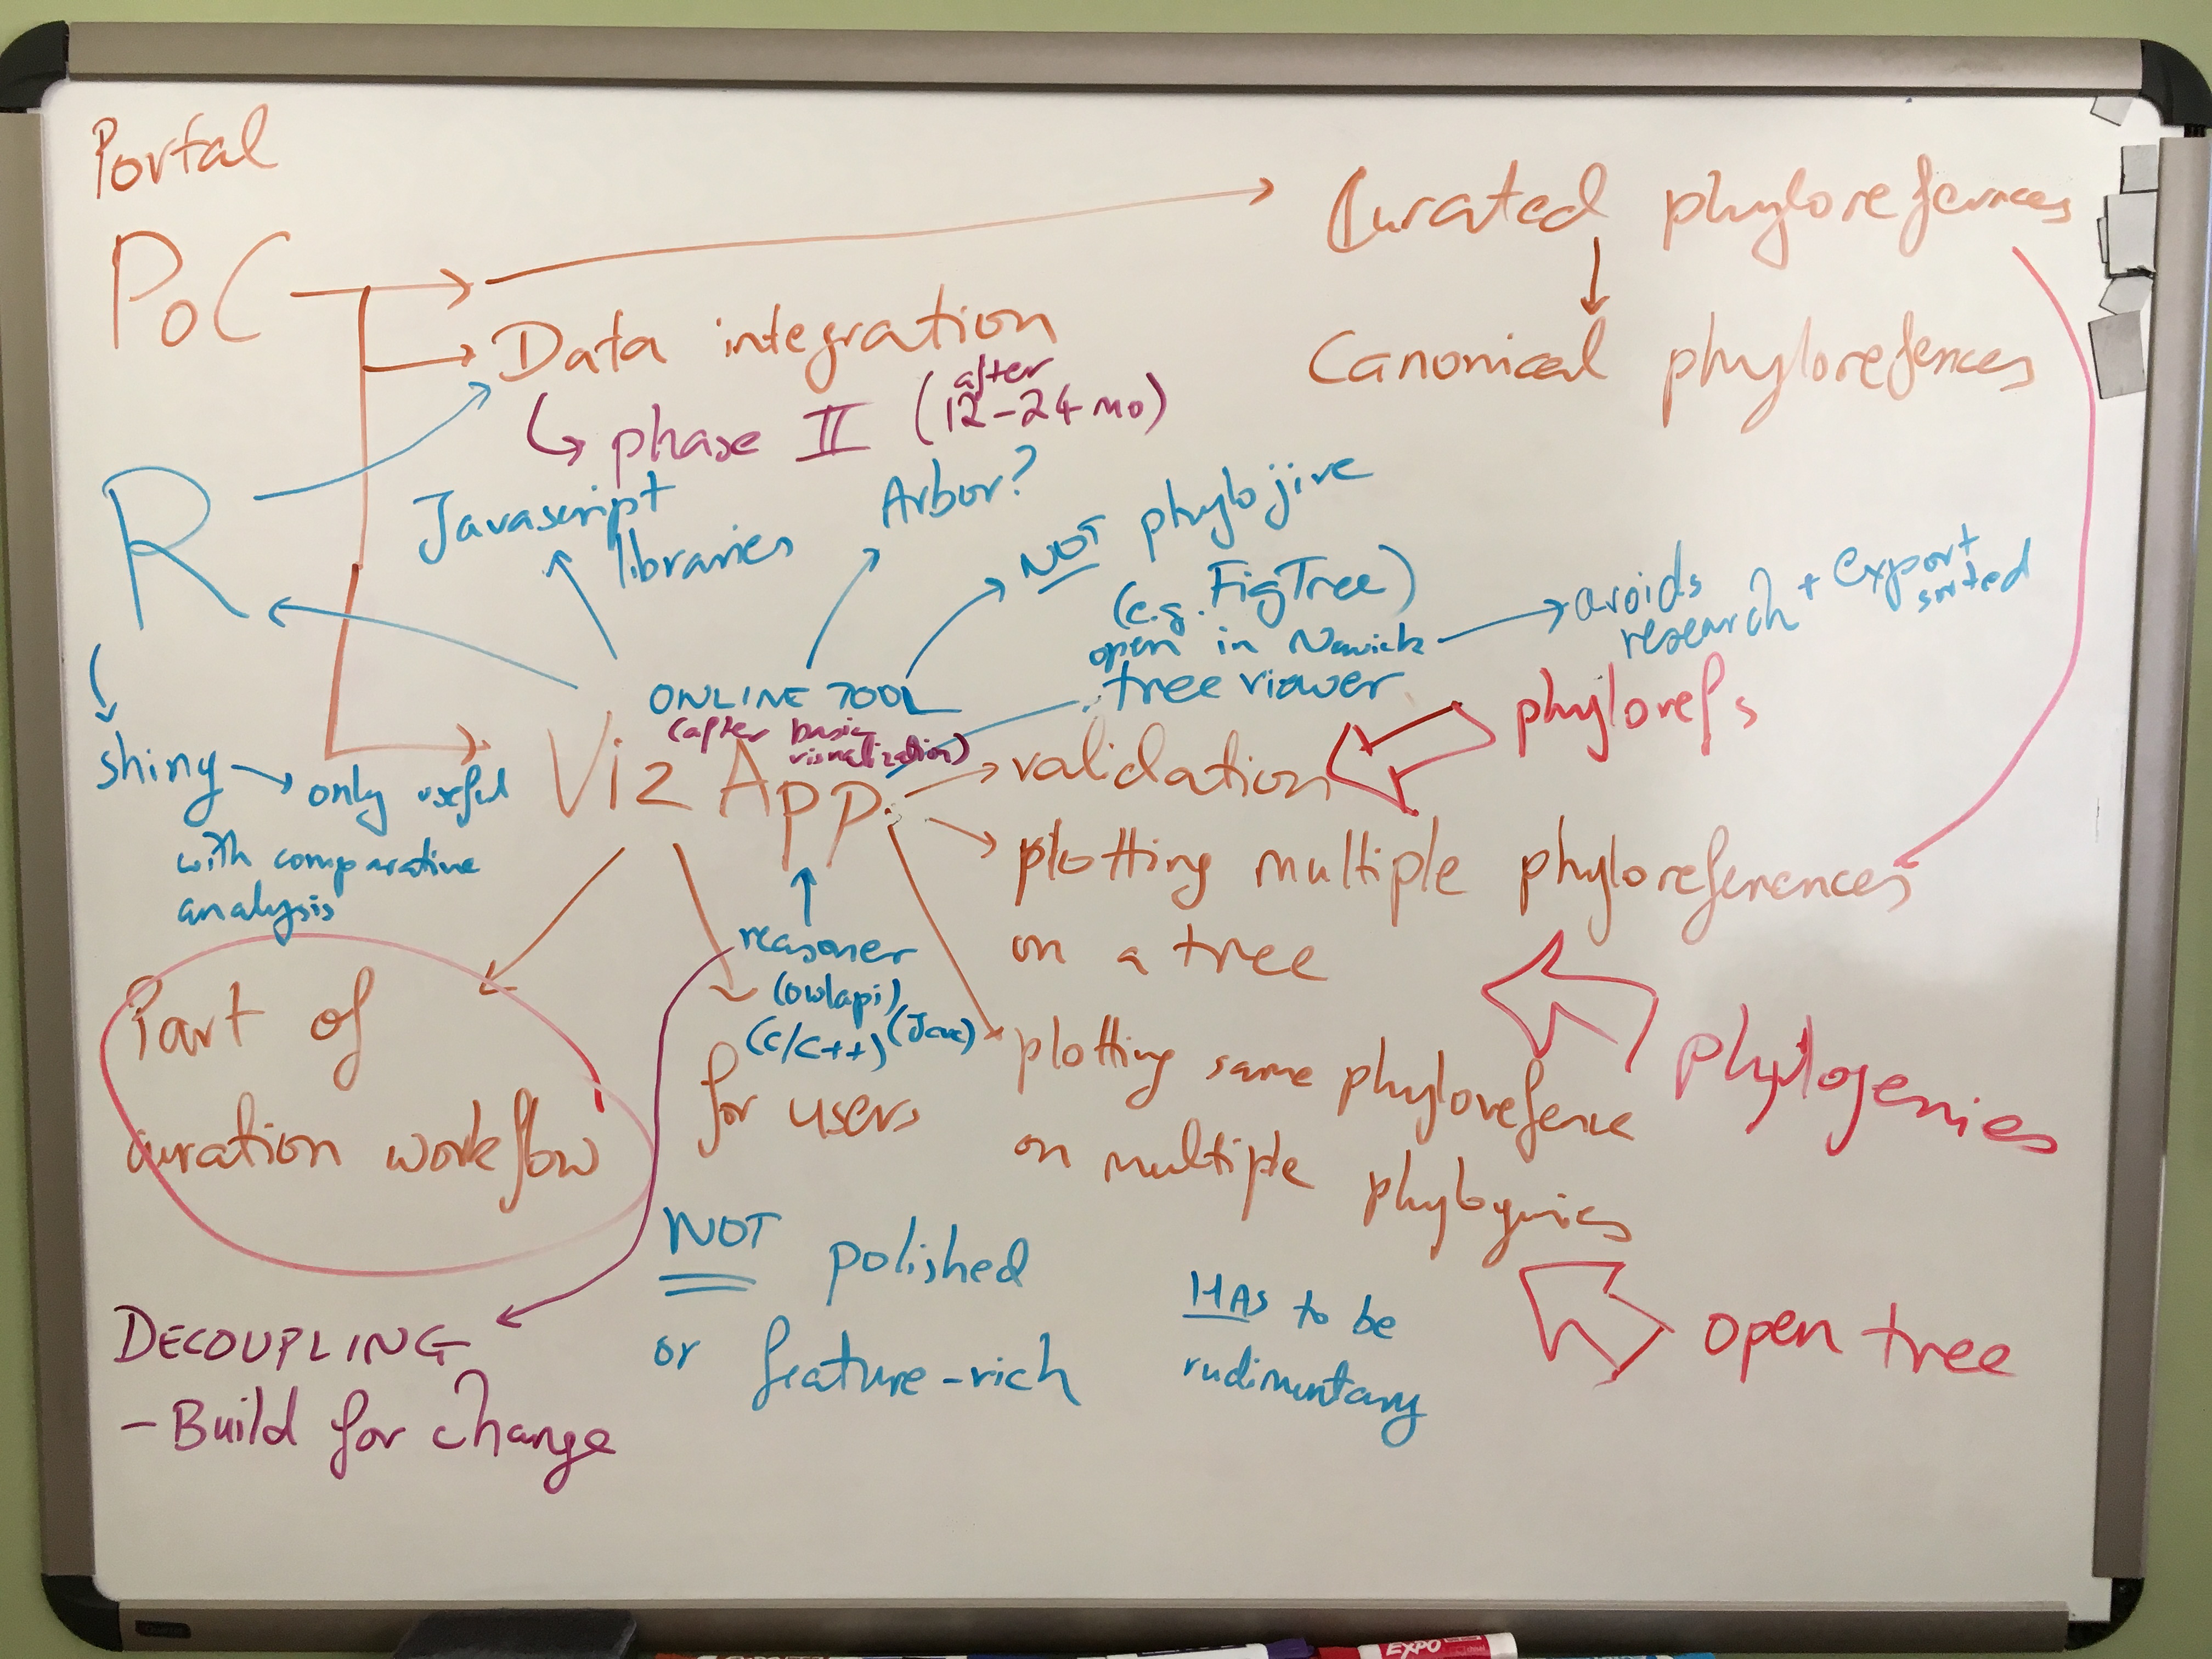 Portal
PoC
Curated phyloreferences
Canonical phylorefences
Data integration
phase II (after 12-24 mo)
R
Javascript
libraries
Arbor?
NOT phylojive
(e.g. FigTree)
open in Newick
tree viewer
avoids
research
+ export
sorted
shiny
only useful
with comparative
analysis
ONLINE TOOL
(after basic
visualization)
Viz App
validation
phylorefs
plotting multiple phyloreferences
on a tree
reasoner
(owlapi)
(C/C++) (Java)
for users
Part of
curation workflow
plotting same phylorefence
on multiple phylogenies
phylogenies
NOT polished
or feature-rich
HAS to be
rudimentary
open tree
DECOUPLING
- Build for change
EXPO